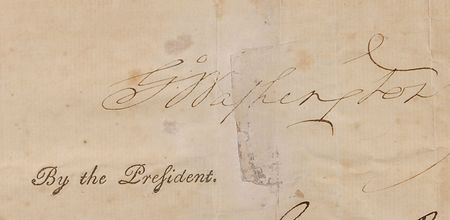 Go Washington
By the Preſident.